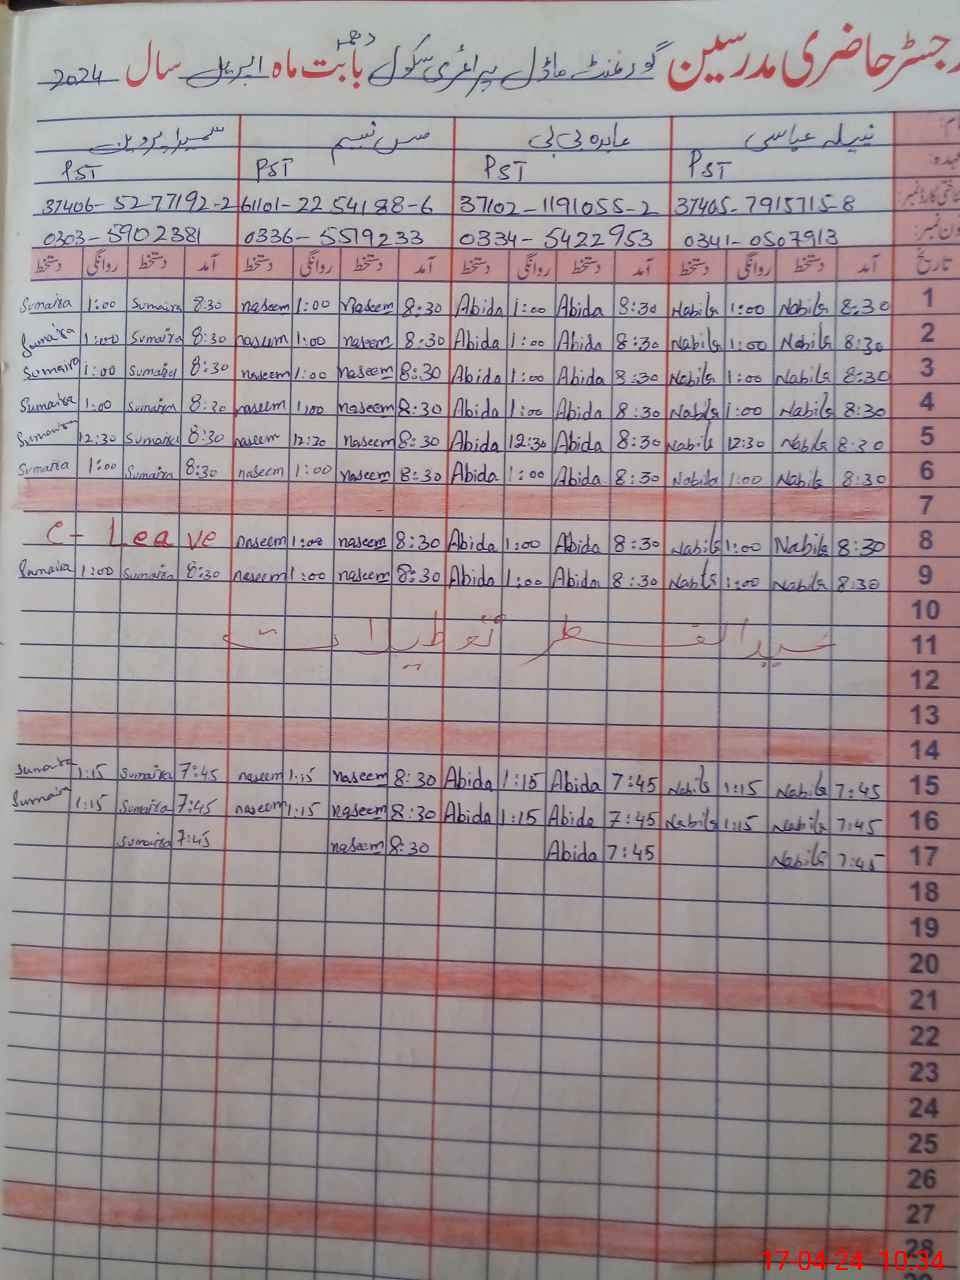 رجسٹر حاضری مدرسین گورنمنٹ ماڈل پرائمری سکول بابت ماہ اپریل سال 2024
نام: نبیلہ عباسی عابدہ بی بی مس نسیم سمیرا پروین
عہدہ: PST PST PST PST
شناختی کارڈ نمبر 37405-7915715-8 37102-1191055-2 61101-2254188-6 37406-5277192-2
فون نمبر: 0341-0507913 0334-5422953 0336-5519233 0303-5902381
تاریخ آمد دستخط روانگی دستخط آمد دستخط روانگی دستخط آمد دستخط روانگی دستخط آمد دستخط روانگی دستخط
1 8:30 Nabila 1:00 Nabila 8:30 Abida 1:00 Abida 8:30 Naseem 1:00 naseem 8:30 Sumaira 1:00 Sumaira
2 8:30 Nabila 1:00 Nabila 8:30 Abida 1:00 Abida 8:30 naseem 1:00 naseem 8:30 Sumaira 1:00 Sumaira
3 8:30 Nabila 1:00 Nabila 8:30 Abida 1:00 Abida 8:30 naseem 1:00 naseem 8:30 Sumaira 1:00 Sumaira
4 8:30 Nabila 1:00 Nabila 8:30 Abida 1:00 Abida 8:30 naseem 1:00 naseem 8:30 Sumaira 1:00 Sumaira
5 8:30 Nabila 12:30 Nabila 8:30 Abida 12:30 Abida 8:30 naseem 12:30 naseem 8:30 Sumaira 12:30 Sumaira
6 8:30 Nabila 1:00 Nabila 8:30 Abida 1:00 Abida 8:30 naseem 1:00 naseem 8:30 Sumaira 1:00 Sumaira
7
8 8:30 Nabila 1:00 Nabila 8:30 Abida 1:00 Abida 8:30 naseem 1:00 naseem C- Leave
9 8:30 Nabila 1:00 Nabila 8:30 Abida 1:00 Abida 8:30 naseem 1:00 naseem 8:30 Sumaira 1:00 Sumaira
10
11 عید الفطر تعطیلات
12
13
14
15 7:45 Nabila 1:15 Nabila 7:45 Abida 1:15 Abida 8:30 naseem 1:15 naseem 7:45 Sumaira 1:15 Sumaira
16 7:45 Nabila 1:15 Nabila 7:45 Abida 1:15 Abida 8:30 naseem 1:15 naseem 7:45 Sumaira 1:15 Sumaira
17 7:45 Nabila 7:45 Abida 8:30 naseem 7:45 Sumaira
18
19
20
21
22
23
24
25
26
27
28
17-04-24 10:34